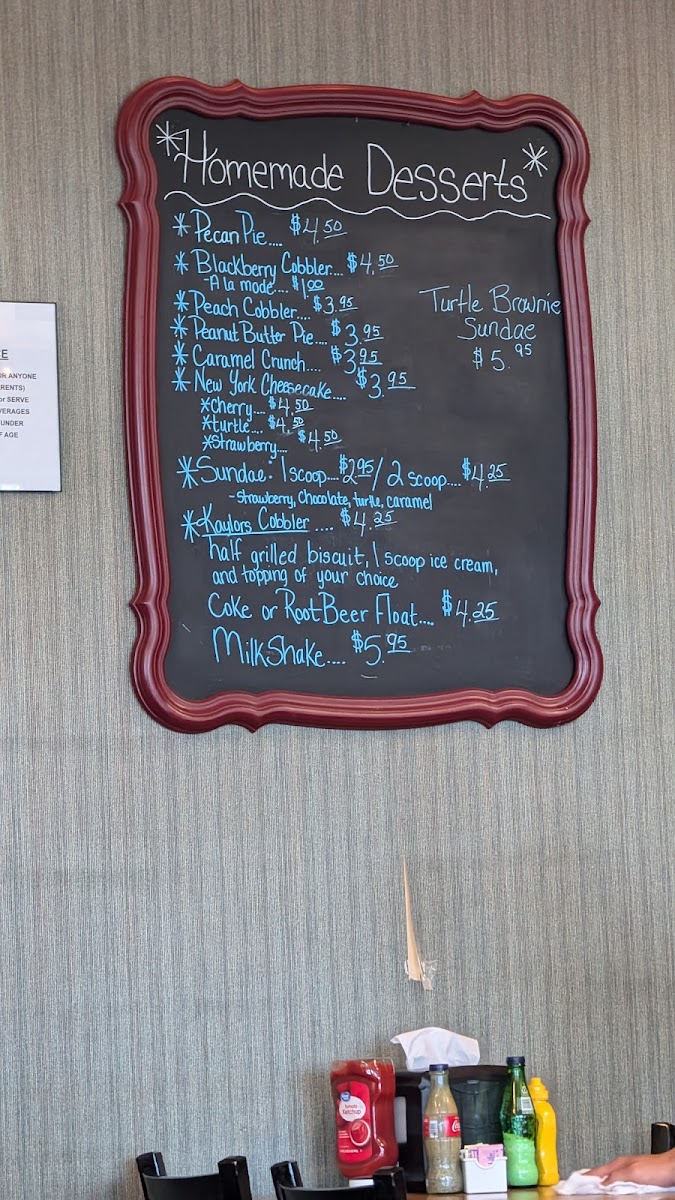 *Homemade Desserts*
*Pecan Pie.... $4.50
*Blackberry Cobbler.... $4.50
-A la mode.... $1.00
*Peach Cobbler.... $3.95
*Peanut Butter Pie.... $3.95
*Caramel Crunch.... $3.95
*New York Cheesecake.... $3.95
*cherry.... $4.50
*turtle.... $4.50
*strawberry.... $4.50
*Sundae: 1 scoop.... $2.95/ 2 scoop.... $4.25
-strawberry, chocolate, turtle, caramel
*Kaylors Cobbler .... $4.25
half grilled biscuit, 1 scoop ice cream,
and topping of your choice
Coke or Root Beer Float.... $4.25
MilkShake.... $5.95
Turtle Brownie
Sundae
$5.95
CE
OR ANYONE
RENTS)
or SERVE
VERAGES
UNDER
F AGE
tomato
Ketchup